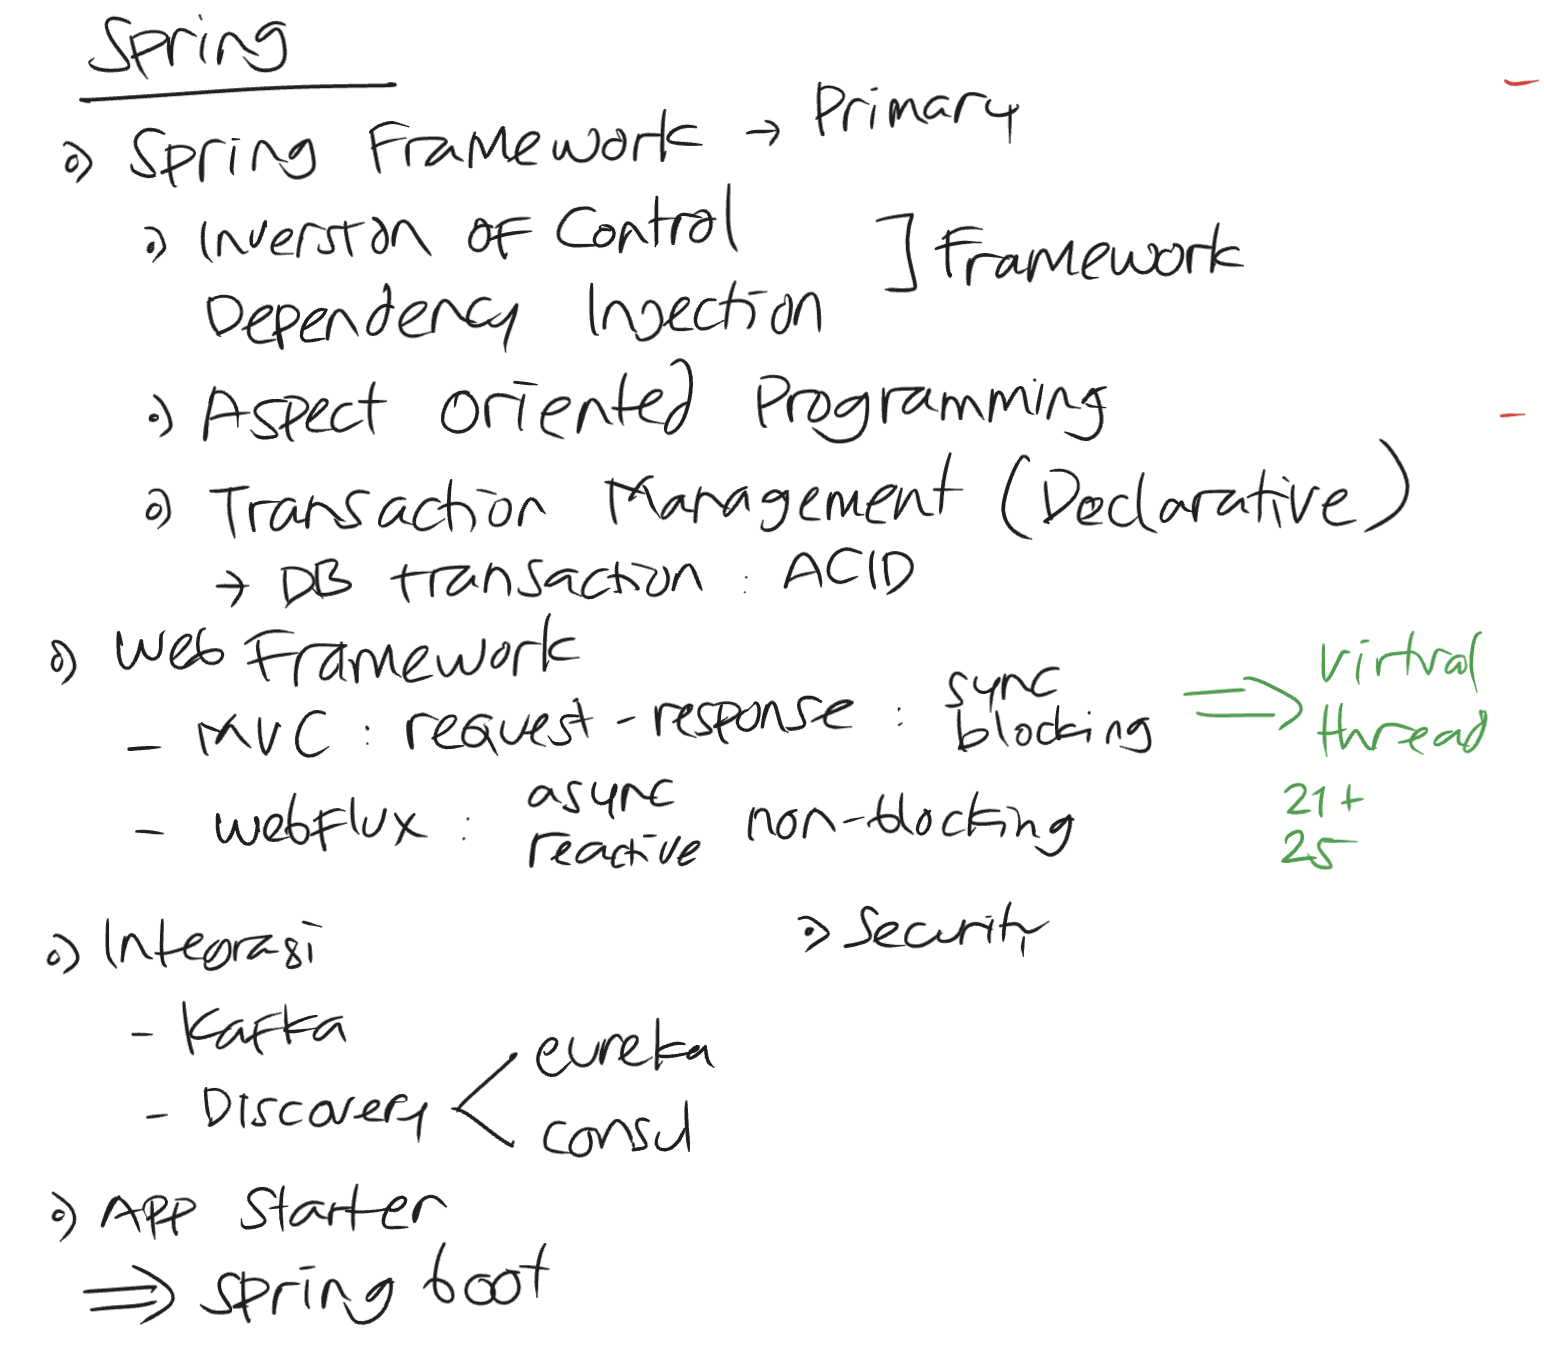 Spring
Spring Framework → Primary
Inversion of Control
Dependency Injection ] Framework
Aspect Oriented Programming
Transaction Management (Declarative)
→ DB transaction : ACID
Web Framework
- MVC : request-response : sync blocking ⇒ virtual thread
21+
25
- webflux : async reactive non-blocking
Integrasi
- Kafka
- Discovery < eureka
consul
Security
App Starter
⇒ spring boot